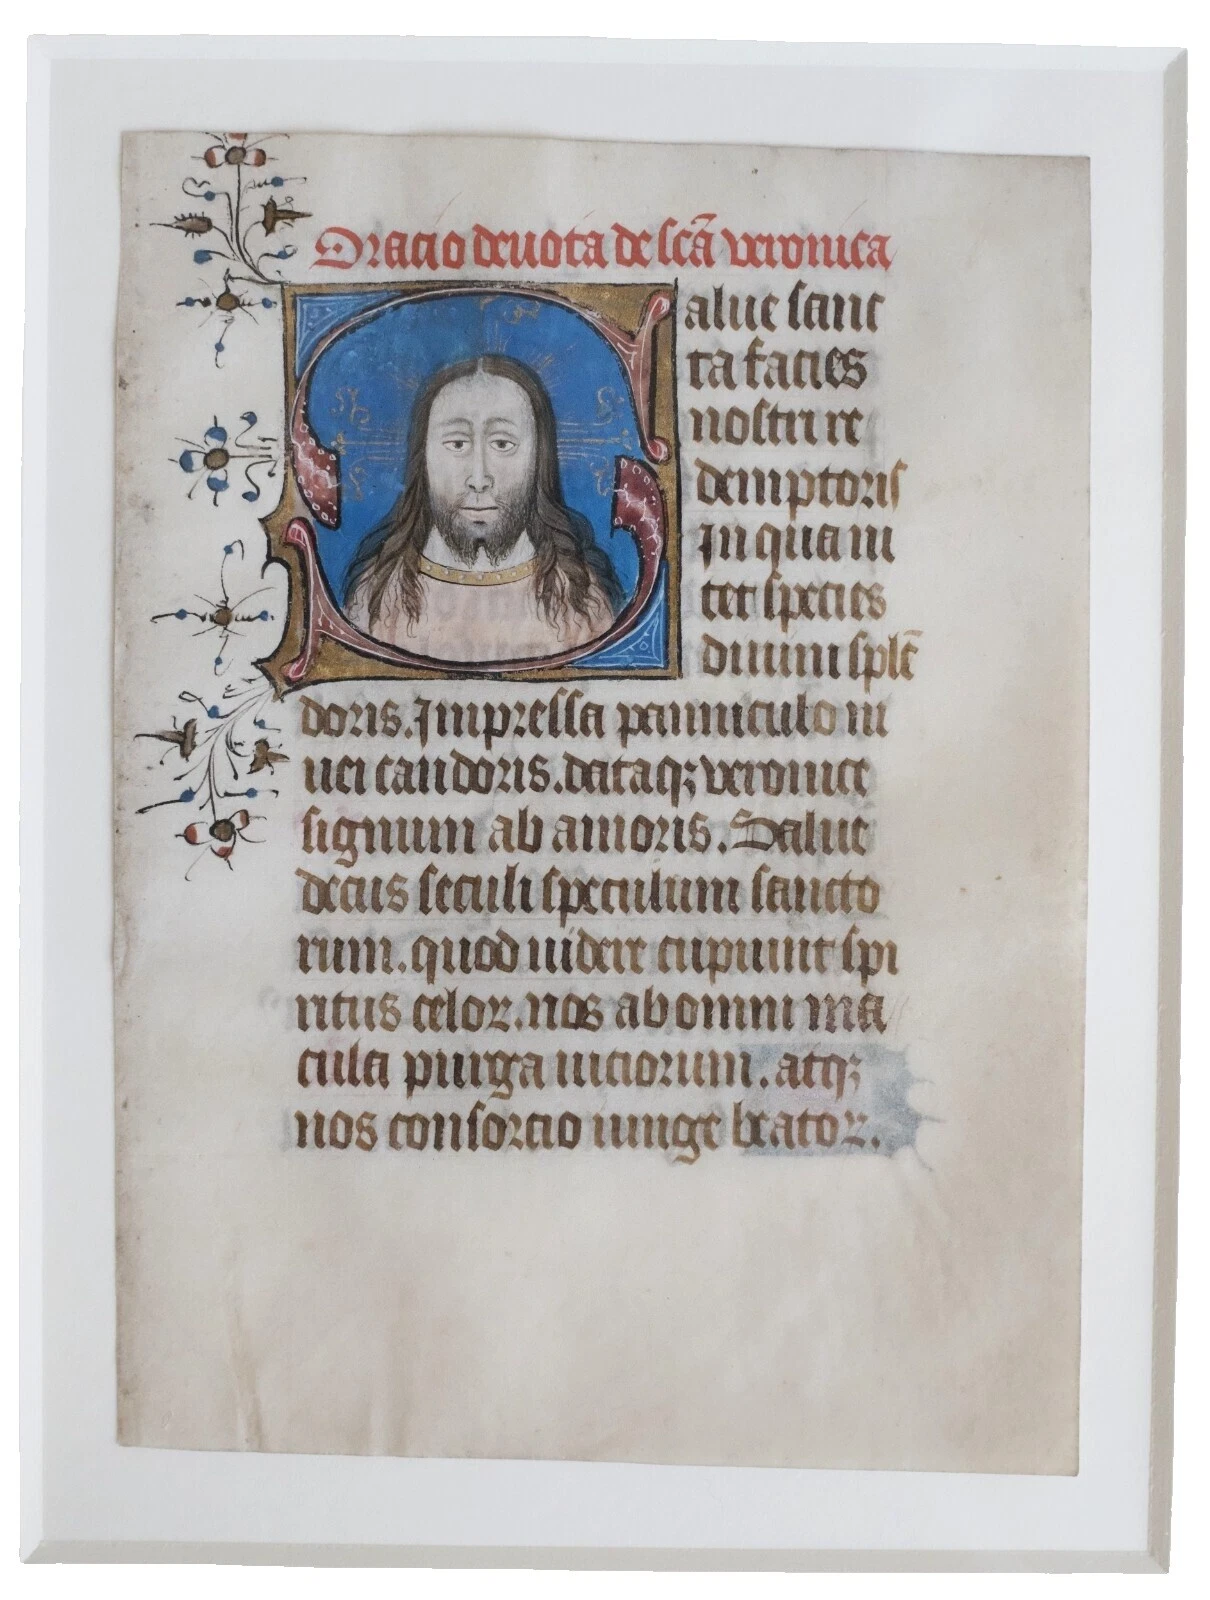 Oracio deuota de scā veronica
Salue sanc
ta facies
nostri re
demptoris
In qua ni
tet species
diuini splē
doris. Impressa panniculo ni
uei candoris. dataqꝫ veronice
signum ab amoris. Salue
decus seculi speculum sancto
rum. quod uidere cupiunt spi
ritus celoꝝ. nos ab omni ma
cula purga uiciorum. atqꝫ
nos consorcio iunge beatoꝝ.